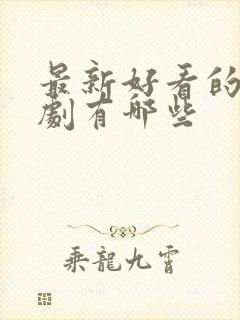 最新好看的
劇有哪些
乘龍九霄